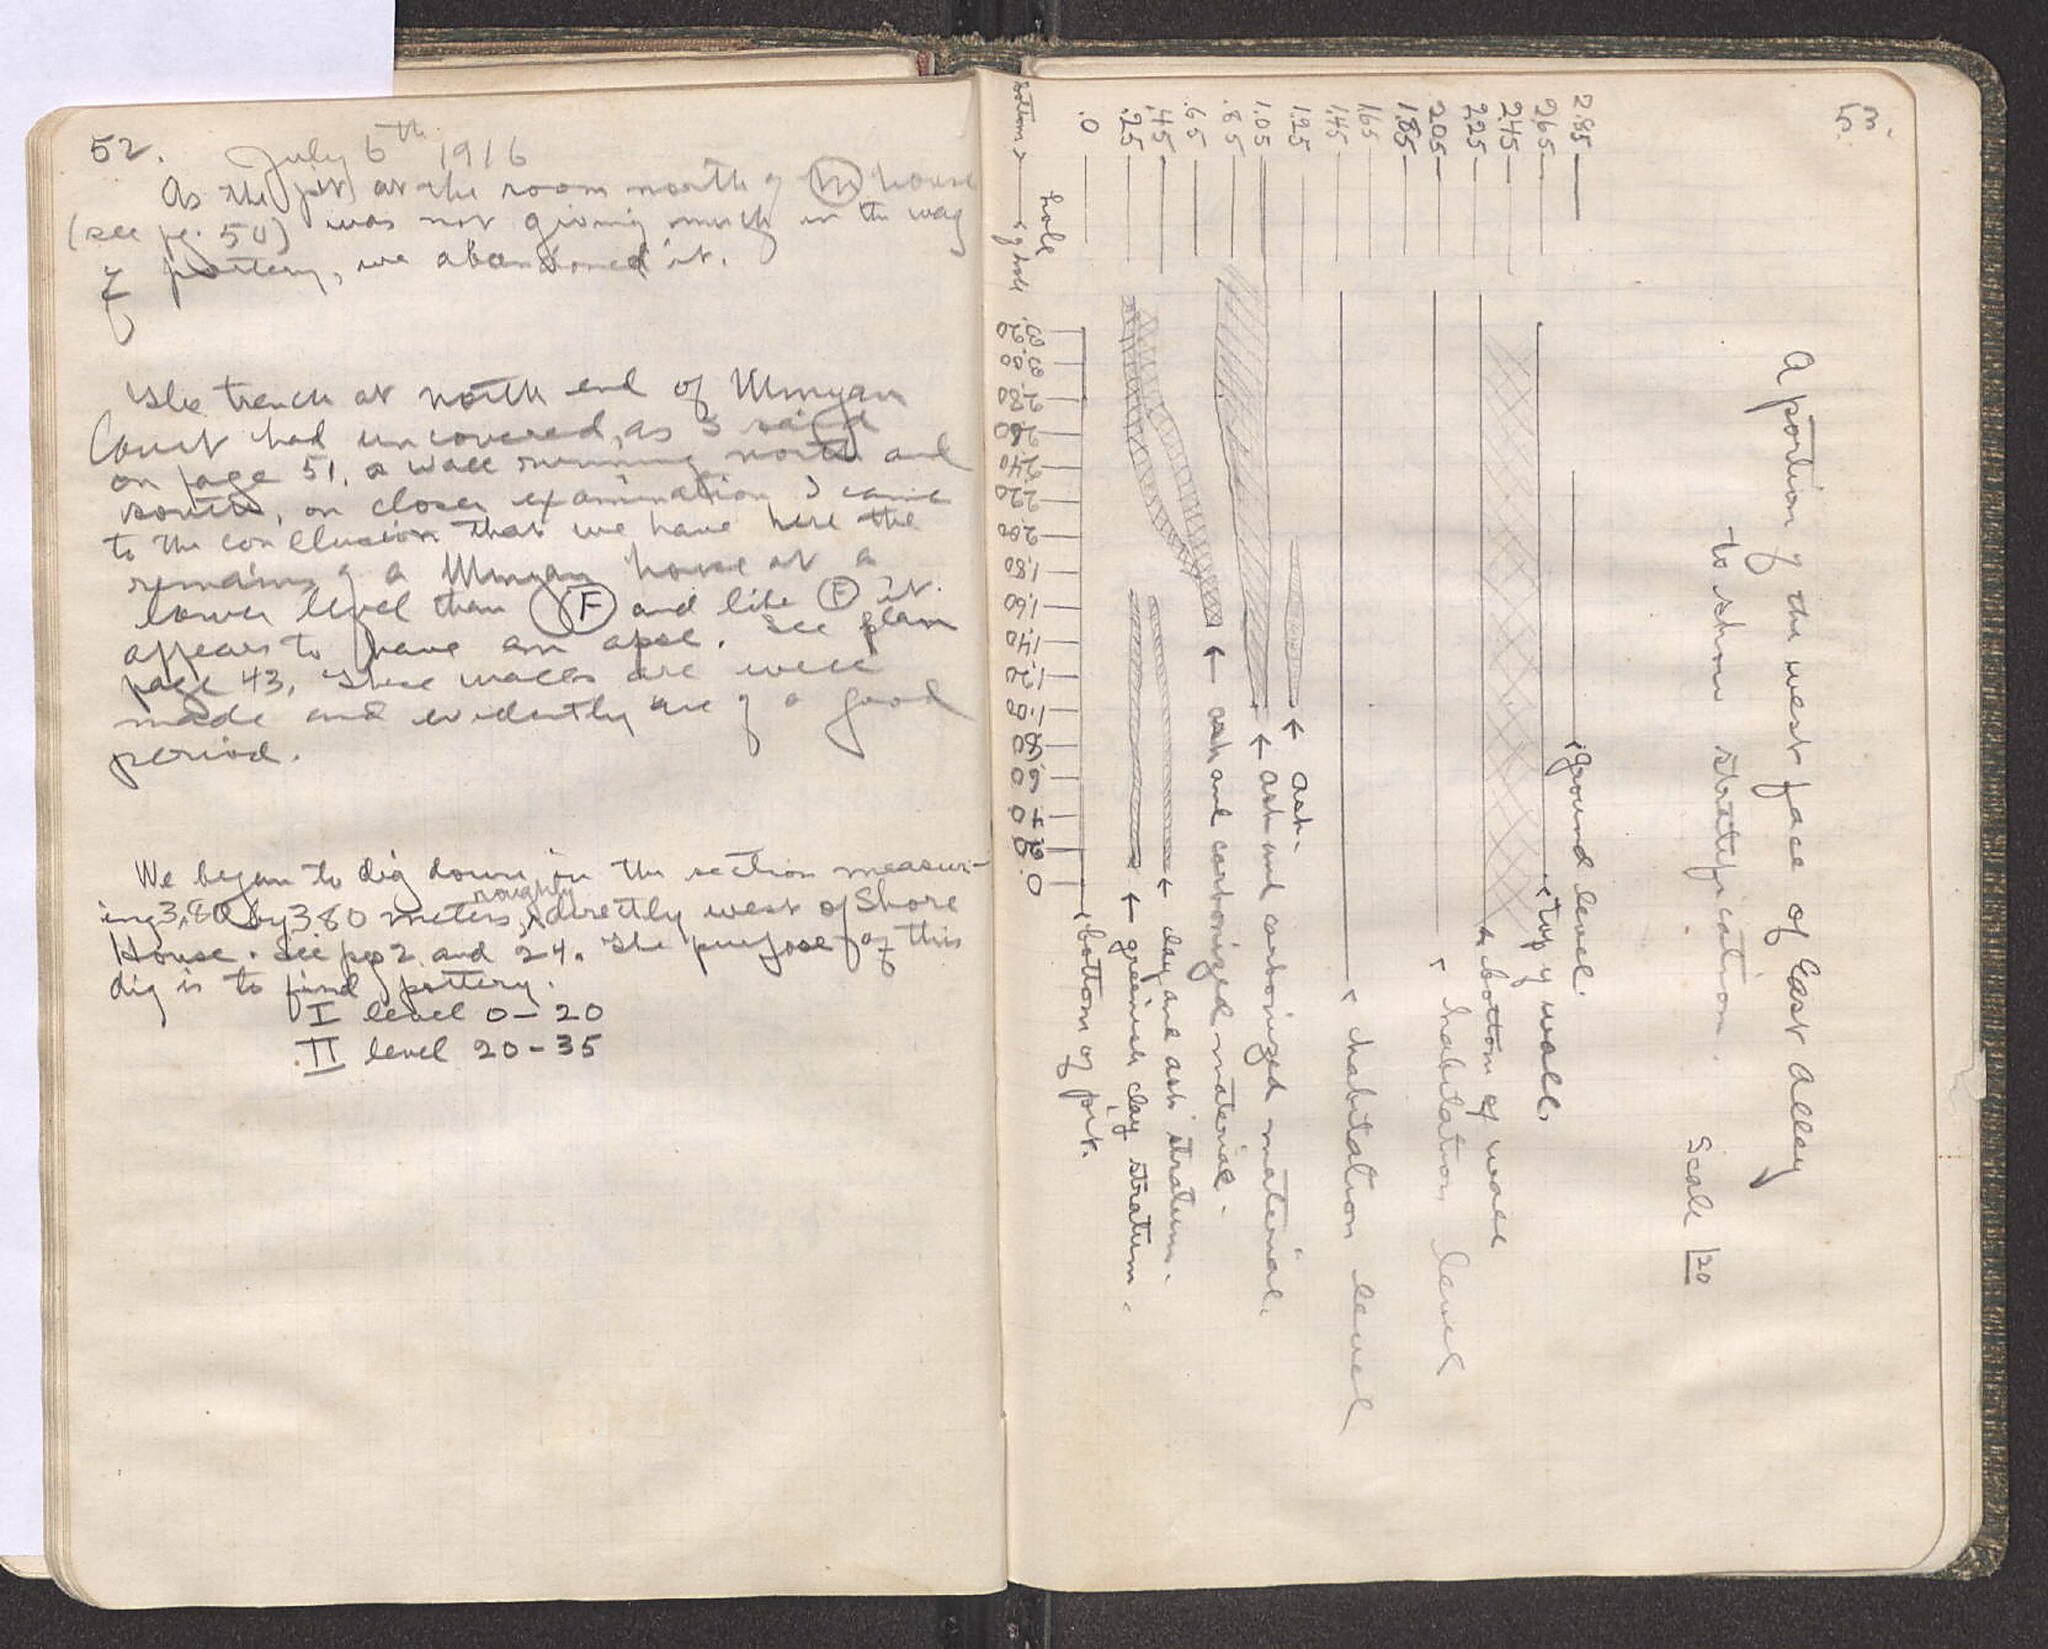 52.
July 6th 1916
As the pit at the room north of M house
(see pg. 50) was not giving much in the way
of pottery, we abandoned it.
The trench at north end of Minyan
Court had uncovered, as I said
on page 51, a wall running north and
south, on closer examination I came
to the conclusion that we have here the
remains of a Minyan house at a
lower level than F and like F it
appears to have an apse. See plan
page 43. These walls are well
made and evidently are of a good
period.
We began to dig down in the section measur-
ing 3.80 by 3.80 meters, roughly directly west of Shore
House. See pgs 2 and 24. The purpose of this
dig is to find pottery.
I level 0-20
II level 20-35
53.
A portion of the west face of East Alley
to show stratification.
Scale 1:20
2.85
2.65
2.45
2.25
2.05
1.85
1.65
1.45
1.25
1.05
.85
.65
.45
.25
.0
ground level.
top of wall.
bottom of wall
habitation level
habitation level
ash.
ash and carbonized material.
ash and carbonized material.
clay and ash stratum.
greenish clay stratum.
bottom of pit.
hole
bottom of hole
3.20
3.00
2.80
2.60
2.40
2.20
2.00
1.80
1.60
1.40
1.20
1.00
.80
.60
.40
.20
.0